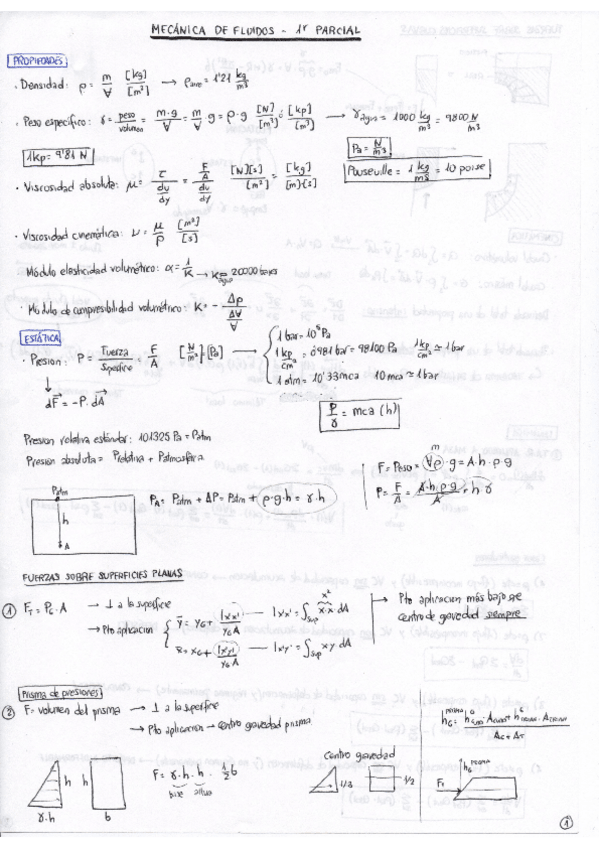 MECÁNICA DE FLUIDOS - 1er PARCIAL
PROPIEDADES
· Densidad: ρ = m/V [kg]/[m³] → ρaire = 1'21 kg/m³
· Peso específico: γ = peso/volumen = m·g/V = m/V · g = ρ·g [N]/[m³] ó [kp]/[m³] → γagua = 1000 kg/m³ = 9800 N/m³
1kp = 9'81 N
Pa = N/m²
Pouseville = 1 kg/m³ = 10 poise
· Viscosidad absoluta: μ = τ/(du/dy) = (F/A)/(du/dy) [N][s]/[m²] = [kg]/[m]·[s]
· Viscosidad cinemática: ν = μ/ρ [m²]/[s]
· Módulo elasticidad volumétrico: α = 1/K → Kagua = 20000 bares
· Módulo de compresibilidad volumétrico: K = - Δp/(ΔV/V)
ESTÁTICA
· Presion: P = Fuerza/Superficie = F/A [N/m²] = [Pa] →
1 bar = 10⁵ Pa
1 kp/cm² = 0'981 bar = 98100 Pa 1 kp/cm² ≃ 1 bar
1 atm = 10'33 mca 10 mca ≃ 1 bar
dF = -P · dA
P/γ = mca (h)
Presion relativa estándar: 101325 Pa = Patm
Presion absoluta = Prelativa + Patmosfera
F = Peso = Vρ · g = A·h·ρ·g
m
P = F/A = A·h·ρ·g/A = h·γ
Patm
h
A
PA = Patm + ΔP = Patm + ρ·g·h = γ·h
FUERZAS SOBRE SUPERFICIES PLANAS
① FT = PG · A → ⊥ a la superficie
→ Pto aplicacion
y = yG + Ix'x'/yG A — Ix'x' = ∫sup x·x dA
x²
x = xG + Ix'y'/yG A — Ix'y' = ∫sup xy dA
→ Pto aplicacion más bajo que
centro de gravedad siempre
Prisma de presiones
② F = volumen del prisma → ⊥ a la superficie
→ Pto aplicacion → Centro gravedad prisma
F = γ·h·h · 1/2 b
base altura
h
h
γ·h
b
Centro gravedad
1/3
1/2
AC + AT
FT
hG PRISMA
①